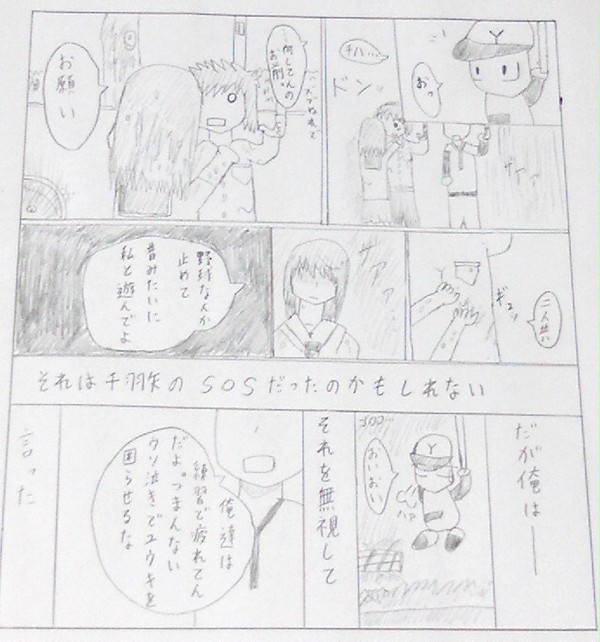 Y
おっ
チハ…
ドンッ
ザァァ
…何してんの
お前。
バスでぬれて
お願い
二人共!
ギュッ
ザァァ…
野球なんか
止めて
昔みたいに
私と遊んでよ
それは千羽矢のSOSだったのかもしれない
だが俺は――
Y
おいおい
ハァ
それを無視して
俺達は
練習で疲れてん
だよ。つまんない
ウソ泣きでユウキを
困らせるな
言った